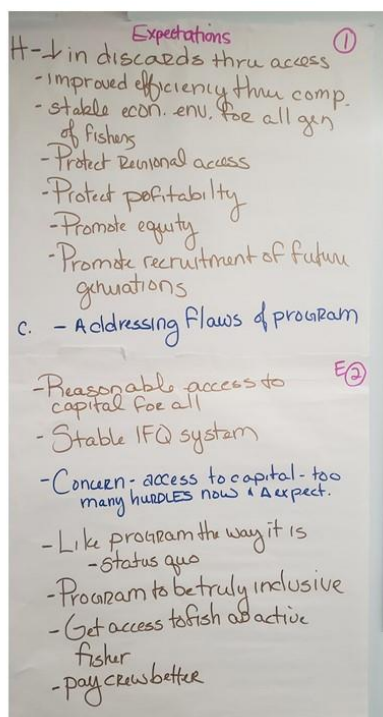 Expectations ①
H-↓ in discards thru access
- improved efficiency thru comp.
- stable econ. env. for all gen
of fishers
- Protect Regional access
- Protect pofitabilty
- Promote equity
- Promote recruitment of future
genuations
C. - Addressing flaws of program
E②
- Reasonable access to
capital for all
- Stable IFQ system
- Concern - access to capital - too
many hurdles now & Δ expect.
- Like program the way it is
- status quo
- Program to be truly inclusive
- Get access to fish as active
fisher
- pay crew better